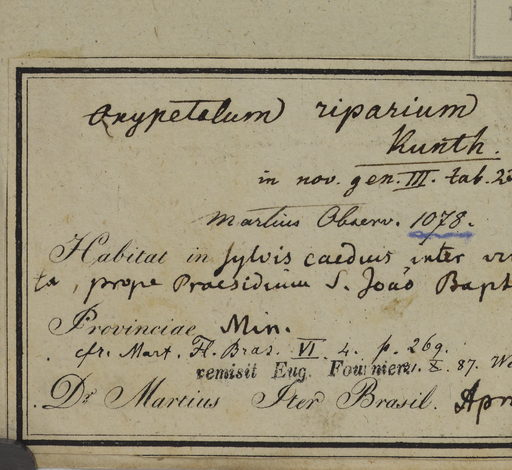 Oxypetalum riparium
Kunth.
in nov. gen. III. tab. 23
Martius Observ. 1078.
Habitat in sylvis caeduis inter vir
ta, prope Praesidium S. João Bapt
Provinciae Min.
cfr. Mart. Fl. Bras. VI. 4. p. 269.
remisit Eug. Fournier X. 87.
Dr Martius Iter Brasil. Apr